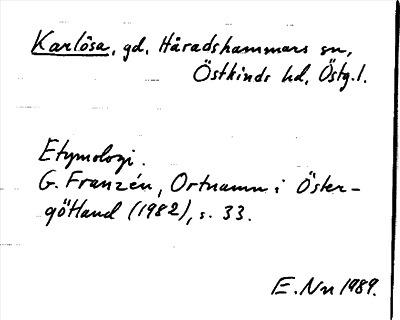 Karlösa, gd, Häradshammars sn,
Östkinds hd, Östg.l.
Etymologi.
G. Franzén, Ortnamn i Öster-
götland (1982), s. 33.
E. Nn 1989.